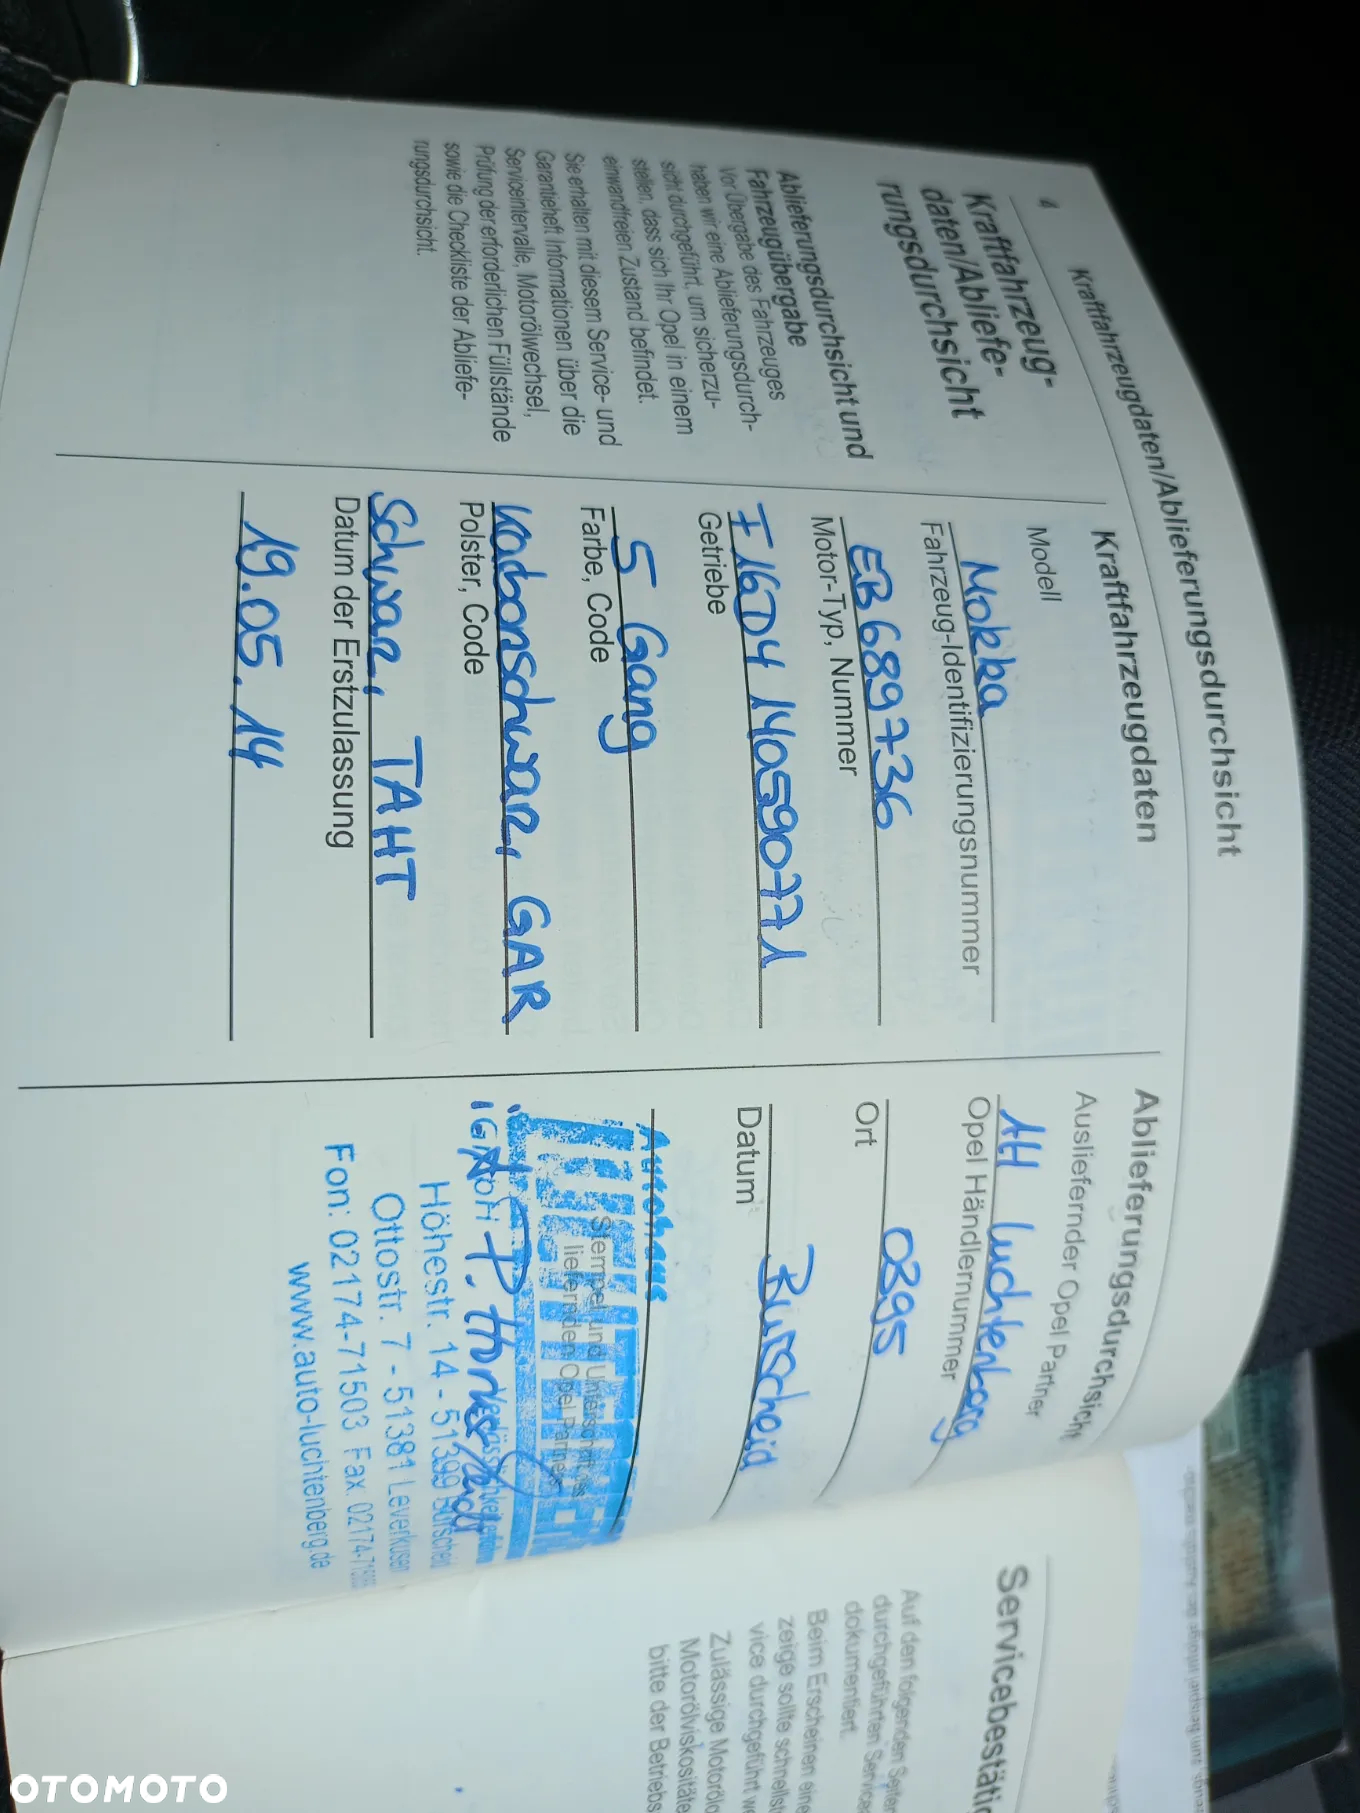 4
Kraftfahrzeugdaten/Ablieferungsdurchsicht
Kraftfahrzeug-
daten/Abliefe-
rungsdurchsicht
Ablieferungsdurchsicht und
Fahrzeugübergabe
Vor Übergabe des Fahrzeuges
haben wir eine Ablieferungsdurch-
sicht durchgeführt, um sicherzu-
stellen, dass sich Ihr Opel in einem
einwandfreien Zustand befindet.
Sie erhalten mit diesem Service- und
Garantieheft Informationen über die
Serviceintervalle, Motorölwechsel,
Prüfung der erforderlichen Füllstände
sowie die Checkliste der Abliefe-
rungsdurchsicht.
Kraftfahrzeugdaten
Modell
Mokka
Fahrzeug-Identifizierungsnummer
EB689736
Motor-Typ, Nummer
F16D4 140590771
Getriebe
5 Gang
Farbe, Code
Karbonschwarz, GAR
Polster, Code
Schwarz, TAHT
Datum der Erstzulassung
19.05.14
Ablieferungsdurchsicht
Ausliefernder Opel Partner
AH Luchtenberg
Opel Händlernummer
0395
Ort
Burscheid
Datum
Autohaus
Stempel und Unterschrift des
liefernden Opel Partners
Höhestr. 14 - 51399 Burscheid
Ottostr. 7 - 51381 Leverkusen
Fon: 02174-71503 Fax 02174-
www.auto-luchtenberg.de
Auf den folgenden Seiten
durchgeführten Service
dokumentiert.
Beim Erscheinen eine
zeige sollte schnellst
vice durchgeführt we
Zulässige Motorölq
Motorölviskosität
bitte der Betriebs
OTOMOTO